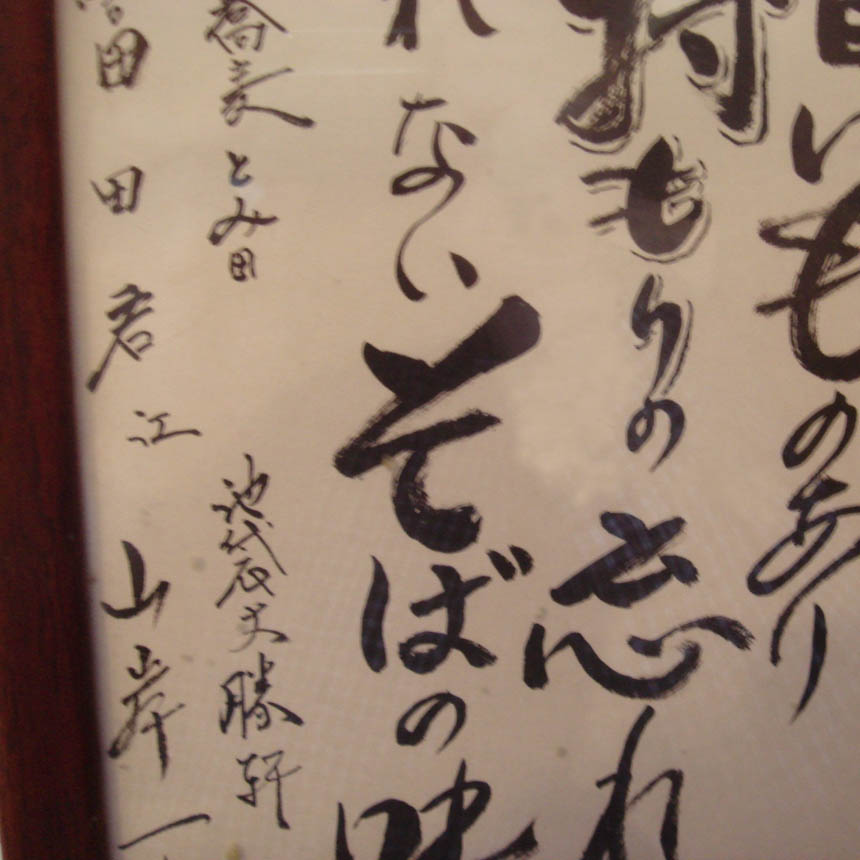 いものあり
持もりの忘れ
れないそばの味
蕎麦とみ田
池袋大勝軒
田田君江
山岸一